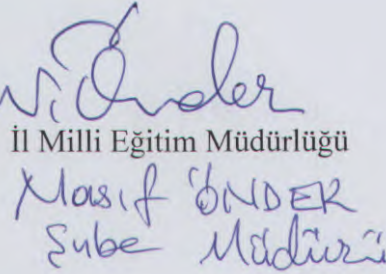 N. Önder
İl Milli Eğitim Müdürlüğü
Nasıf ÖNDER
Şube Müdürü